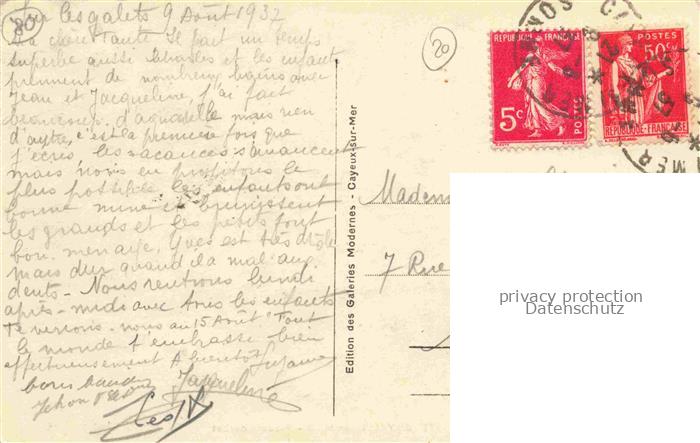 80
Sur les galets 9 Août 1937
Ma chère Tante Il fait un temps
superbe aussi Charles et les enfants
prennent de nombreux bains avec
Jean et Jacqueline, j'ai fait
beaucoup d'aquarelle mais rien
d'autre, c'est la première fois que
j'écris, les vacances s'avancent
mais nous en profitons le
plus possible les enfants ont
bonne mine et brunissent
les grands et les petits font
bon ménage. Yves est très drôle
mais dur quand il a mal aux
dents - Nous rentrons lundi
après-midi avec tous les enfants
Te verrons-nous au 15 Août? Tout
le monde t'embrasse bien
affectueusement A bientôt Suzanne
Jacqueline
20
Edition des Galeries Modernes - Cayeux-sur-Mer
REPUBLIQUE FRANÇAISE
5c
POSTES
POSTES
50c
REPUBLIQUE-FRANÇAISE
7 Rue
privacy protection
Datenschutz